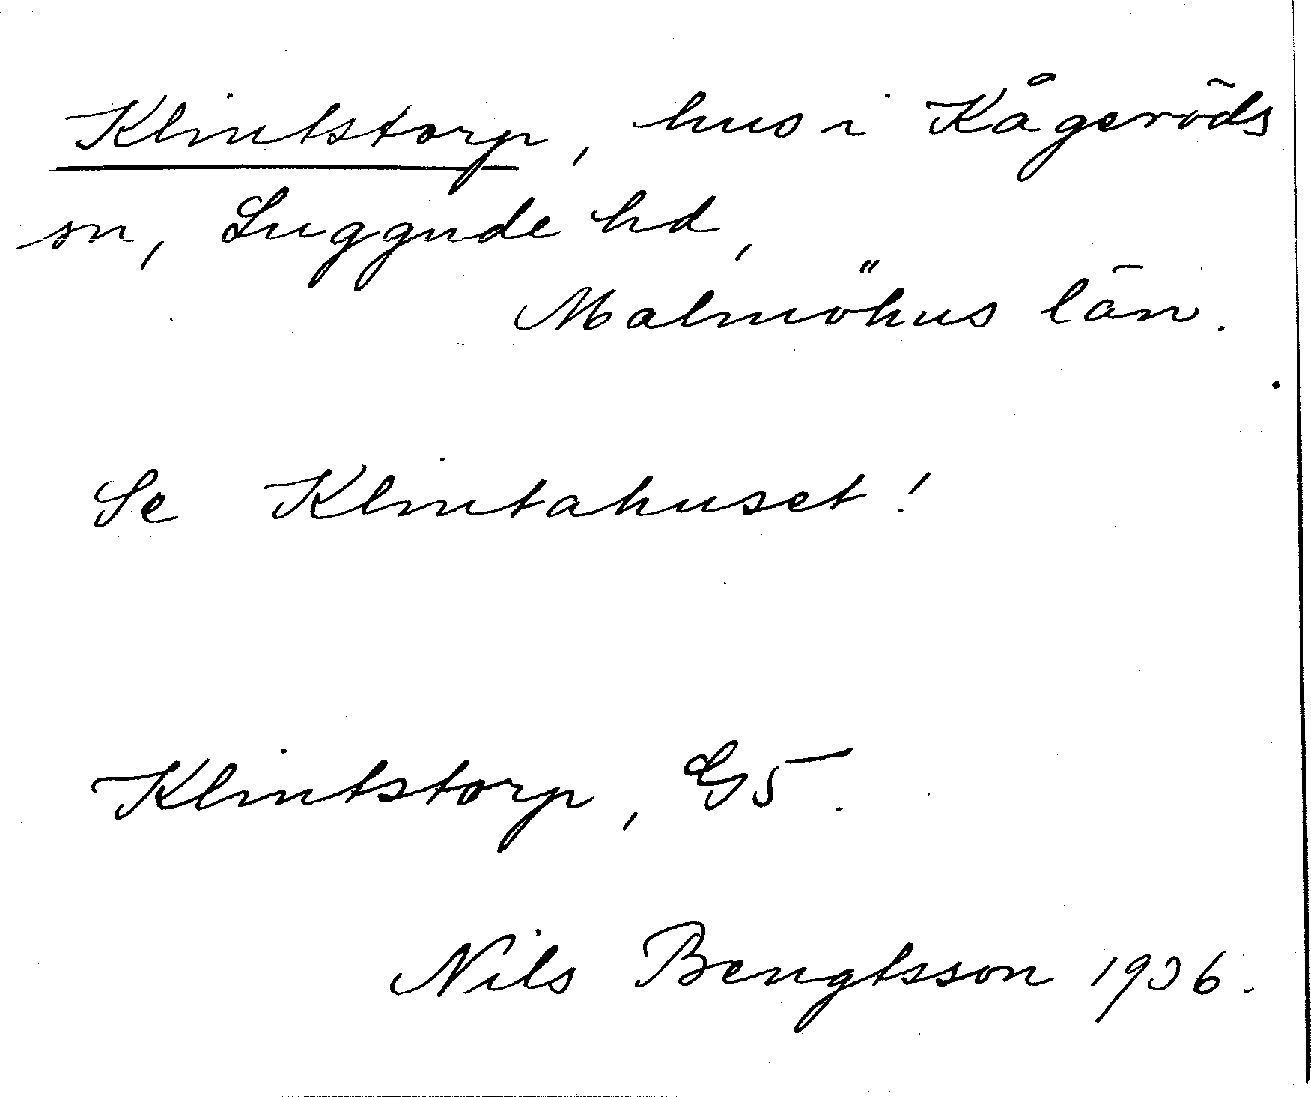 Klintstorp, hus i Kågeröds
sn, Luggude hd,
Malmöhus län.
Se Klintahuset!
Klintstorp, G5.
Nils Bengtsson 1936.